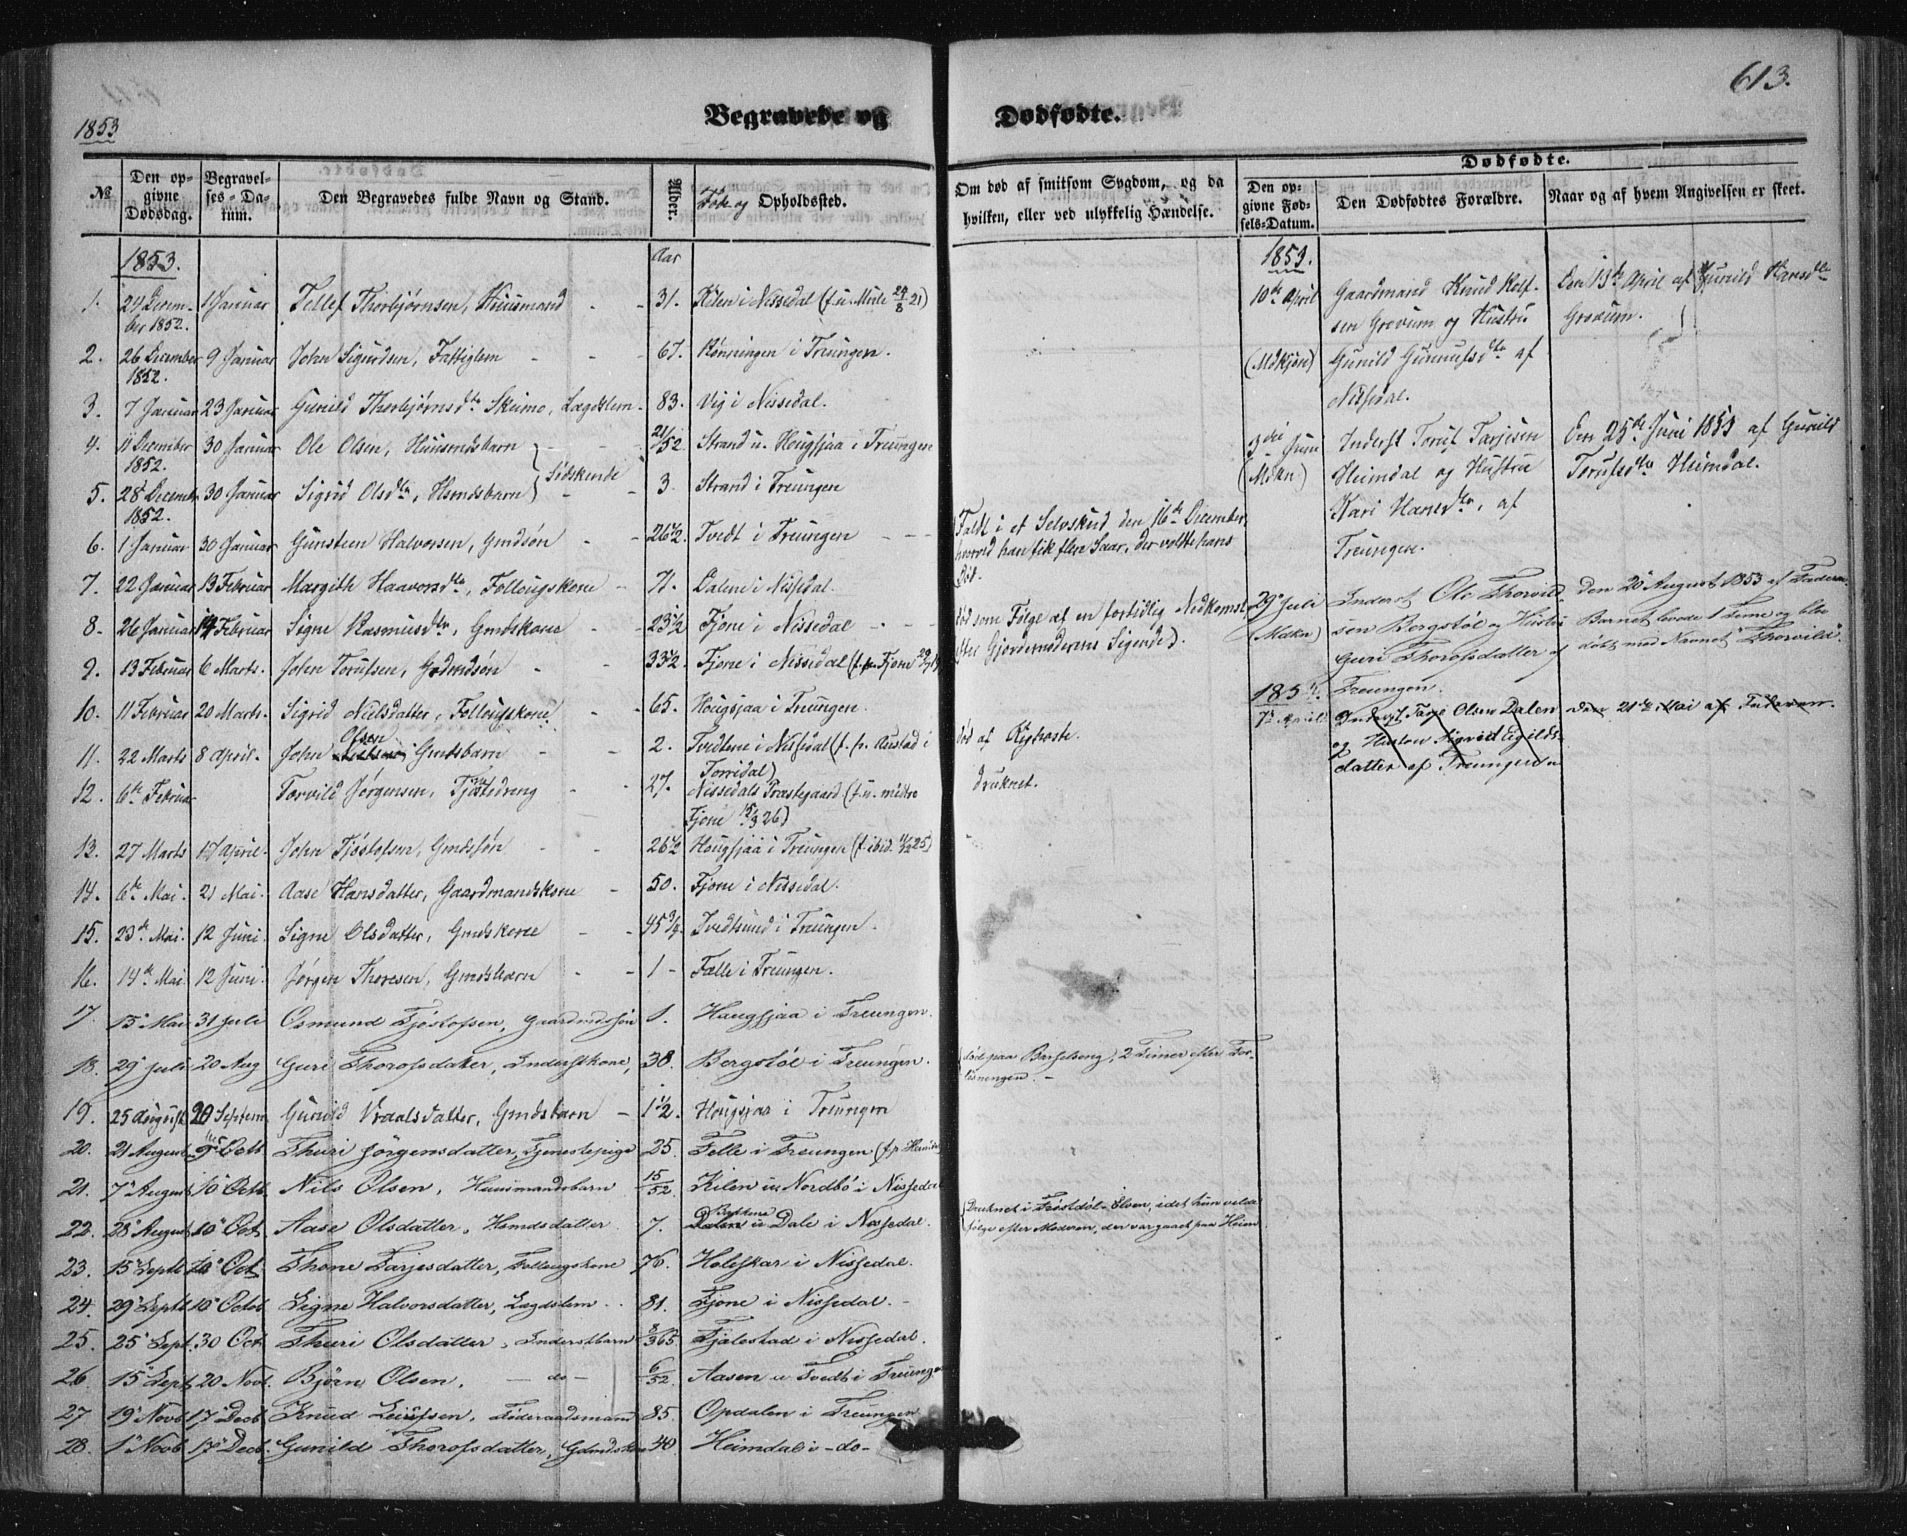 613.
1853
Begravede og Dødfødte.
№
Den opgivne Dødsdag.
Begravelses-Datum.
Den Begravedes fulde Navn og Stand.
Alder.
Føde og Opholdssted.
Om død af smitsom Sygdom, og da hvilken, eller ved ulykkelig Hændelse.
Dødfødte.
Den opgivne Fødsels-Datum.
Den Dødfødtes Forældre.
Naar og af hvem Angivelsen er skeet.
1853. Aar
1. 24 Decem- 1 Januar Tellef Thorbjørnsen, Huusmand - - 31. Kilen i Nissedal (f. u. 24/8 21)
ber 1852.
2. 26 December 9 Januar John Sigurdsen, Fattiglem - - 67. Rønningen i Treungen.
1852.
3. 7 Januar 23 Januar Gunild Thorbjørnsdtr Skeimo, Lægdslem - 83. Vig i Nissedal.
4. 11 December 30 Januar Ole Olsen, Huusmdsbarn - - 21/52 Strand u. Hougsjaa i Treungen
1852. Södskende
5. 28 December 30 Januar Sigrid Olsdtr, Hsmdsbarn - - 3. Strand i Treungen
1852.
6. 1 Januar 30 Januar Gunsteen Halvorsen, Gmdsøn - - 26 1/2 Tvedt i Treungen - - - Faldt i et Selvskud den 16de December,
hvorved han fik flere Saar, der voldte hans
Død.
7. 22 Januar 13 Februar Margith Haavorsdtr, Follougskone - 71. Dalene i Nissedal.
8. 26 Januar 14 Februar Signe Rasmusdtr, Gmdskone - - 23 1/2 Fjone i Nissedal - - død som Følge af en fortidlig Nedkomst
efter Gjordemoderens Sigende).
9. 13 Februar 6 Marts. John Torufsen, Gdmdsøn - 33 1/2 Fjone i Nissedal
10. 11 Februar 20 Marts. Sigrid Nielsdatter, Follougskone - - 65. Hougsjaa i Treungen.
Olsen
11. 22 Marts 8 April. John Gmdsbarn - - 2. Tvedtene i Nissedal (f. p. Rustad i død af Kighoste.
Torridal)
12. 6te Februar Torvild Jørgensen, Tjenstedreng - 27. Nissedals Præstegaard (f. u. midtre druknet.
Fjone 15/3 26)
13. 27 Marts 17 April. John Tjöstofsen, Gmdssøn - - 26 1/2 Hougsjaa i Treungen (f. ibid. 11/12 25)
14. 6te Mai. 21 Mai. Aase Hansdatter, Gaardmandskone - 50. Fjone i Nissedal.
15. 23de Mai. 12 Juni. Signe Olsdatter, Gmdskone - - 45 3/4 Tvedtsund i Treungen.
16. 14de Mai. 12 Juni. Jørgen Thoresen, Gmdsbarn - - 1 - Fælle i Treungen.
17. 15 Mai 31 Juli Osmund Tjöstofsen, Gaardmdssøn 1. Haugsjaa i Treungen.
18. 29 Juli 20 Aug Guri Thorofsdatter, Inderstkone, 38. Bergstöl i Treungen. død paa Barselseng, 2 Timer efter For-
løsningen. -
19. 25 August 20 Septem Gunild Vraalsdatter, Gmdsbarn - 1 1/2. Hougsjaa i Treungen
20. 21 August Octb Thuri Jörgensdatter, Tjenestepige 25. Felle i Treungen
21. 7 August 10 Octb. Nils Olsen, Huusmandsbarn 15/52 Kilen u. Nordbö i Nissedal
22. 28 August 10 Oct Aase Olsdatter, Hsmdsdatter 7. Dale i Nissedal. Druknet i Elven, idet hun vilde
følge efter Moderen, der var gaaet paa Heien
23. 15 Septb 10 Oct Thone Tarjesdatter, Follougskone 76. Holeskar i Nissedal.
24. 29 Septb 10 Octob Signe Halvorsdatter, Lægdslem - - 81. Fjone i Nissedal. -
25. 25 Sept. 30 Oct. Thuri Olsdatter, Inderstbarn 8/365 Fjalestad i Nissedal.
26. 15 Sept 20 Novb. Björn Olsen, - do - 6/52 Aasen u Tvedt i Treungen
27. 19 Novb 17 Decb. Knud Leifsen, Föderaadsmand 85. Opdalen i Treungen
28. 1 Novb 17 Decb. Gunild Thorofsdatter, Gdmdskone 40. Heimdal i - do -
1853.
10de April Gaardmand Knud Rolf- Den 13de April af Gunild Hansdtr
sen Grovum og Hustru Grovum.
(Mdkjøn) Gunild Gunnufsdtr af
Nissedal.
3die Juni Inderst Toruf Tarjesen Den 25de Juni 1853 af Gunild
(Mdkn) Heimdal og Hustru Torufsdtr Heimdal.
Kari Hansdtr, af
Treungen.
29 Juli Inderst Ole Thorvild- Den 20 August 1853 af Faderen.
(Mdkn) sen Bergstøl og Hustru Barnet levede 1 Time og blev
Guri Thorofsdatter af døbt med Navnet "Thorvild".
Treungen.
April Inderst Olsen Dalen den 21de Mai af Faderen.
og Hustru Sigrid Egilds-
datter af Treungen